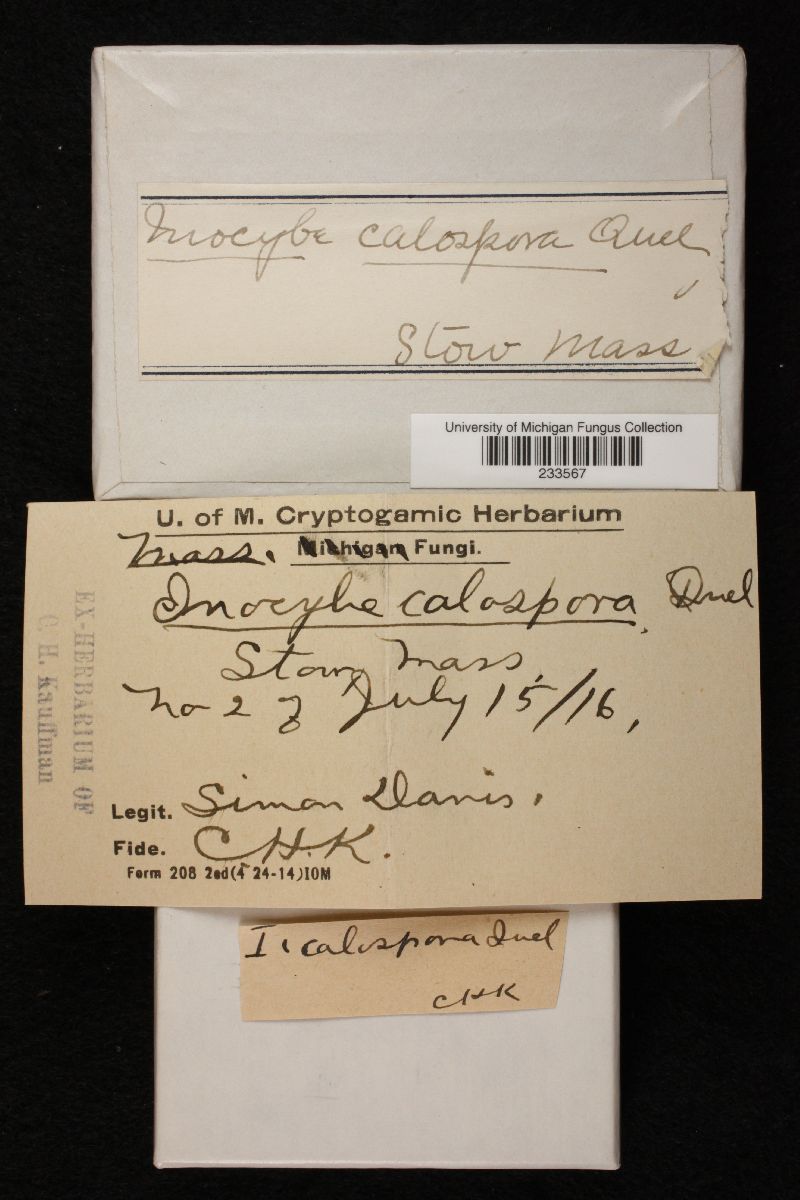 Inocybe calospora Quel
Stow Mass
University of Michigan Fungus Collection
233567
U. of M. Cryptogamic Herbarium
Mass. Michigan Fungi.
Inocybe calospora, Quel
Stow, Mass,
No 2 of July 15/16,
Legit. Simon Davis.
Fide. C.H.K.
Form 208 2ed(4 24-14)10M
EX-HERBARIUM OF
C. H. Kauffman
I. calospora Quel
CHK